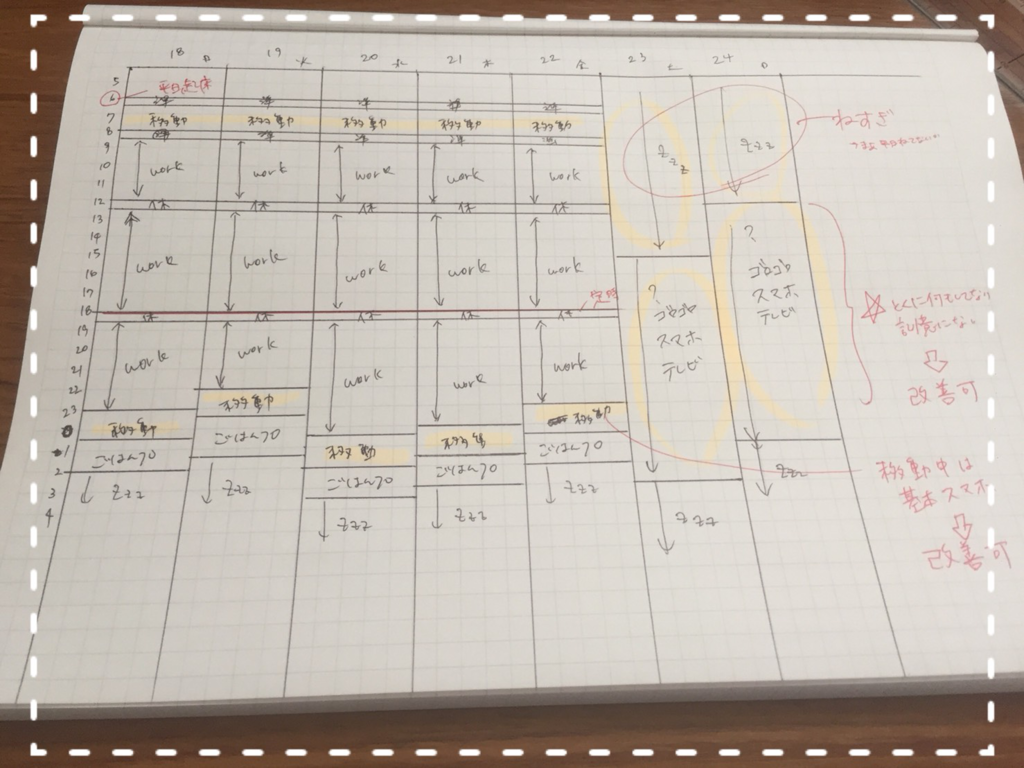 18 月 19 火 20 水 21 木 22 金 23 土 24 日
5
6 平日起床
準 準 準 準 準
7 移動 移動 移動 移動 移動
8 準 準 準 準
9
10 work work work work work
zzz zzz
ねすぎ
11
12 休 休 休 休 休
13
14
15
16 work work work work work
17
18 定時
休 休 休 休
19
20
21 work work work work work
22
23
0
1
2
3
4
移動 移動 移動 移動 移動
ごはんフロ ごはんフロ ごはんフロ ごはんフロ ごはんフロ
zzz zzz zzz zzz zzz
?
ゴロゴロ
スマホ
テレビ
zzz
?
ゴロゴロ
スマホ
テレビ
zzz
☆とくに何もしてない
記憶にない
改善可
移動中は
基本スマホ
改善可